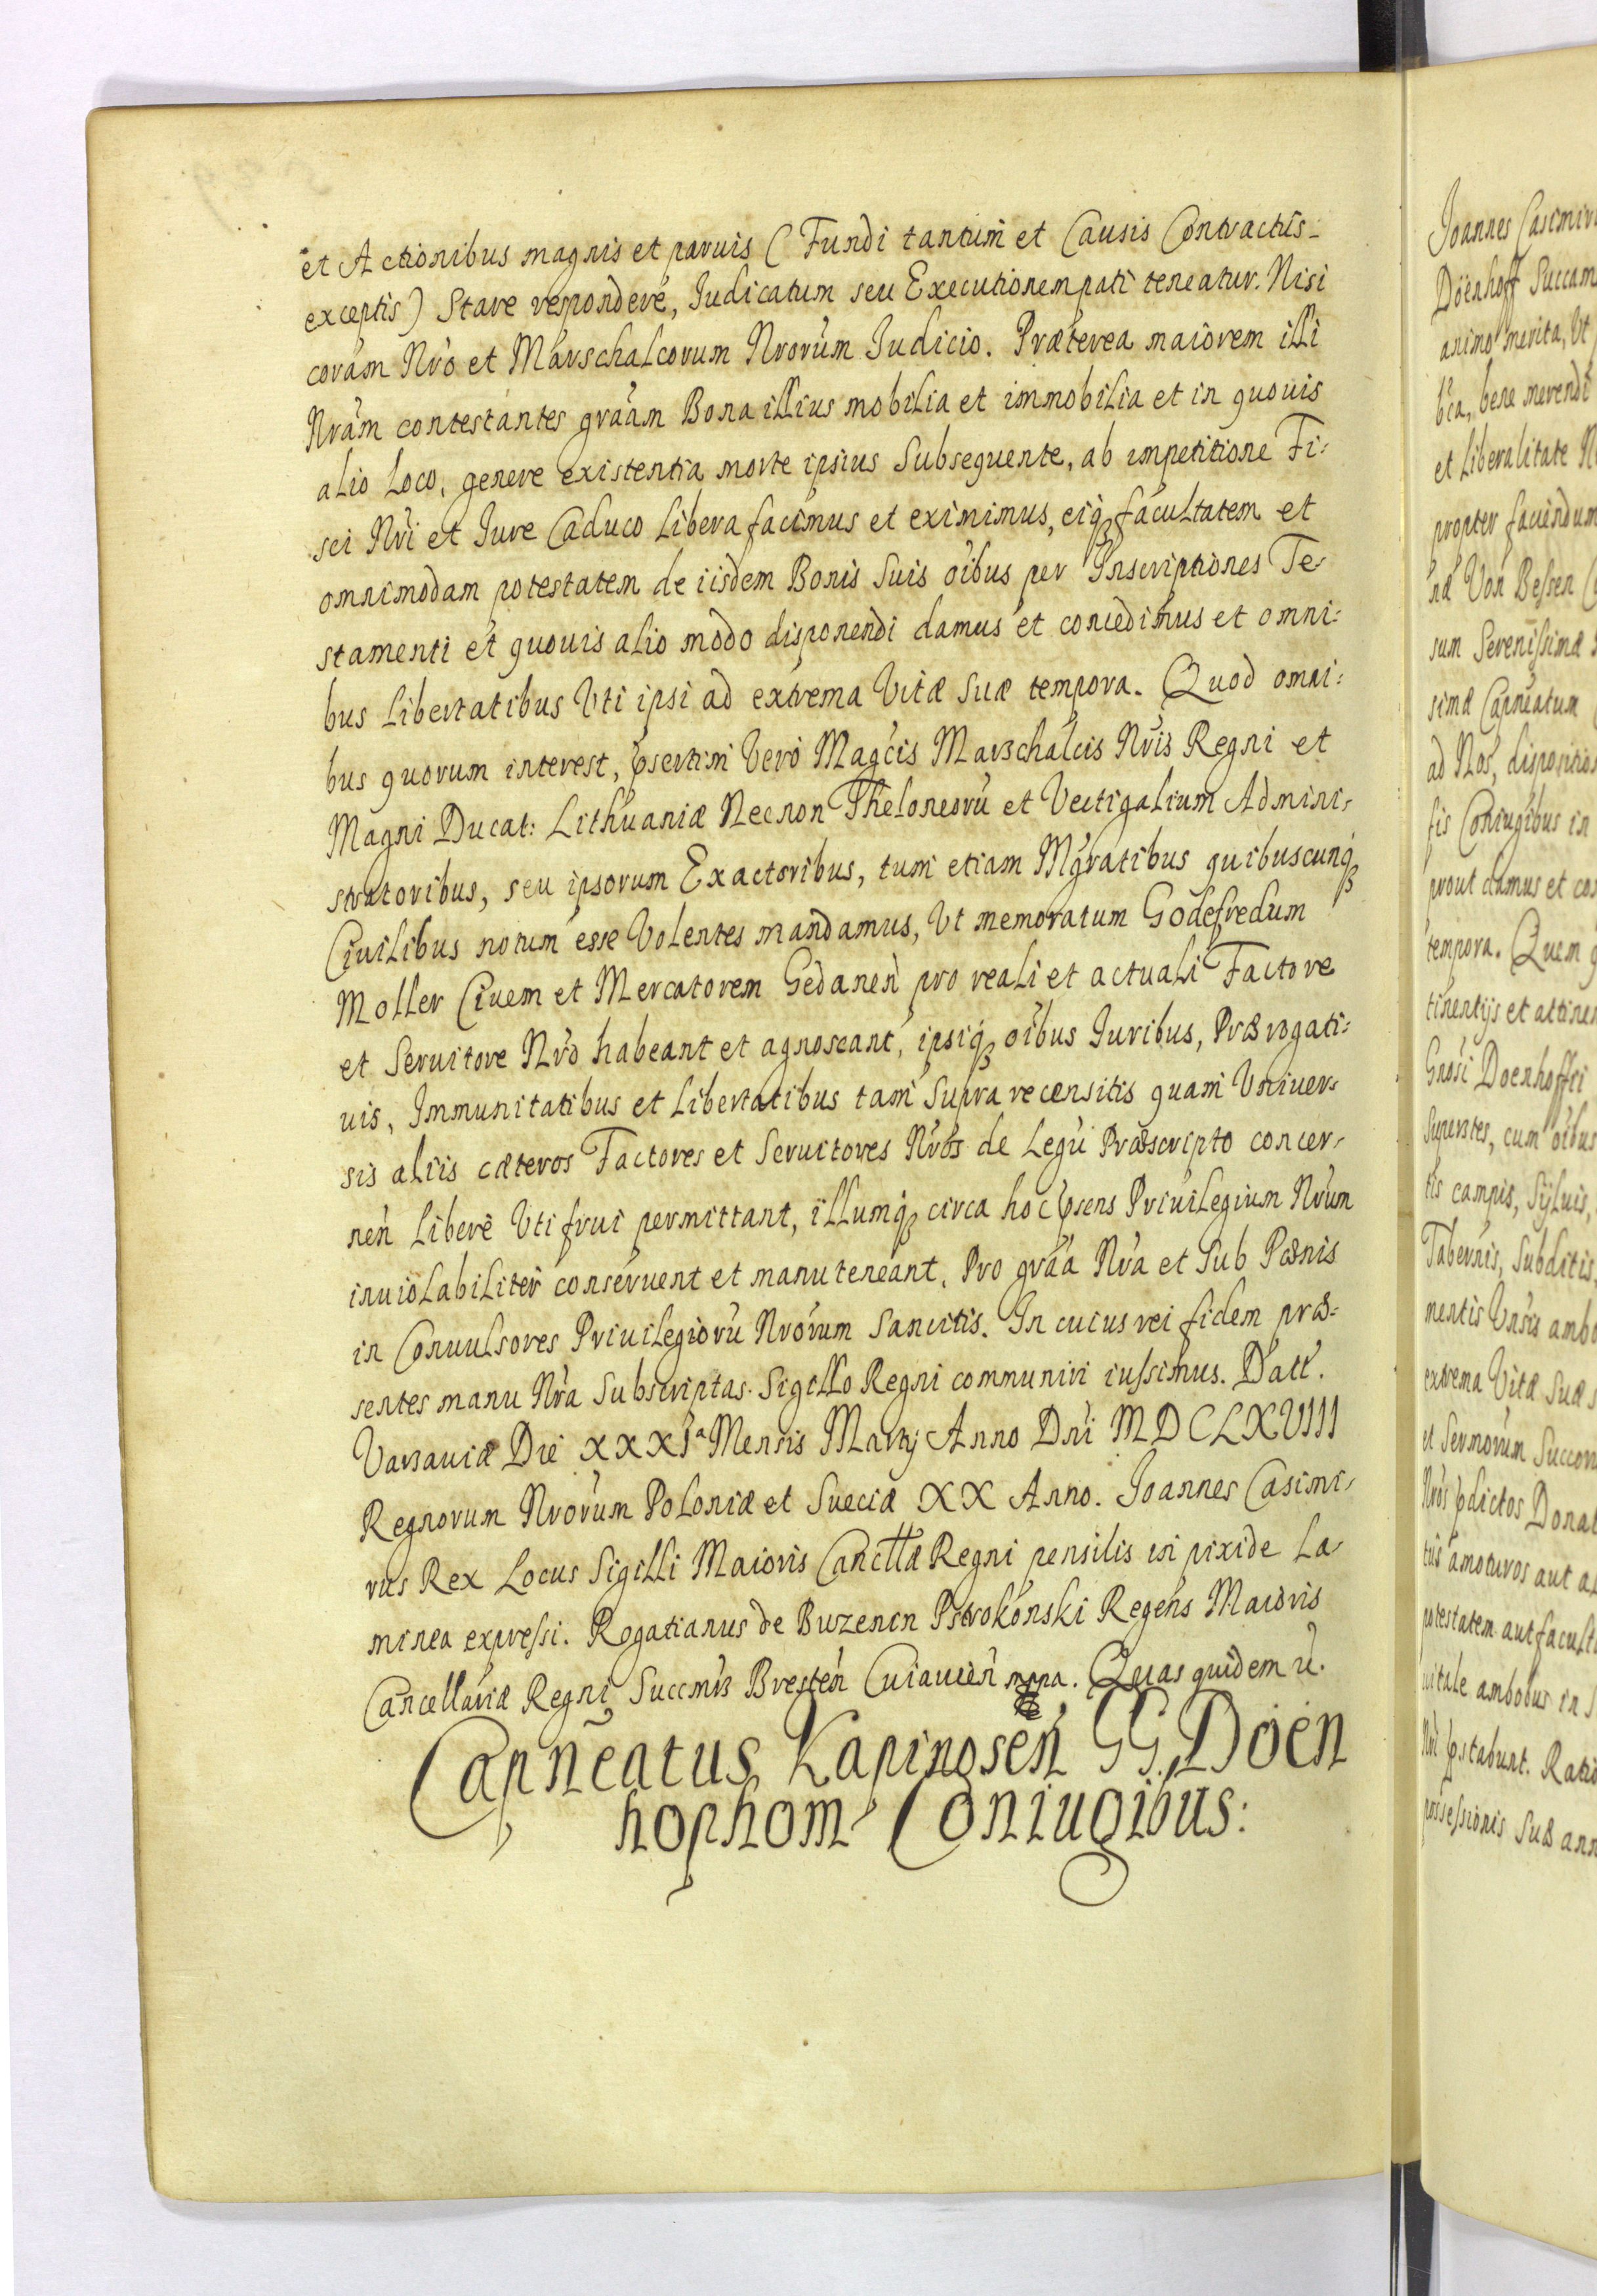 et Actionibus magnis et paruis (Fundi tantum et Causis Contractus
exceptis) Stare respondere, Iudicatum seu Executionem pati teneatur. Nisi
coram Nr̃o et Marschalcorum Nr̃orum Iudicio. Præterea maiorem illi
Nr̃am contestantes gra͠am Bona illius mobilia et immobilia et in quouis
alio Loco, genere existentia morte ipsius Subsequente, ab impetitione Fi:
sci Nr̃i et Iure Caduco Libera facimus et eximimus, eiqꝫ facultatem et
omnimodam potestatem de iisdem Bonis Suis o͠ibus per Inscriptiones Te:
stamenti et quouis alio modo disponendi damus et concedimus et omni:
bus Libertatibus Vti ipsi ad extrema Vitæ Suæ tempora. Quod omni:
bus quorum interest, p̃sertim Vero Mag͠cis Marschalcis Nr̃is Regni et
Magni Ducat: Lithuaniæ Necnon Theloneorũ et Vectigalium Admini:
stratoribus, seu ipsorum Exactoribus, tum etiam Mg̃ratibus quibuscunqꝫ
Ciuilibus notum esse Volentes mandamus, Vt memoratum Godefredum
Moller Ciuem et Mercatorem Gedaneñ pro reali et actuali Factore
et Seruitore Nr̃o habeant et agnoscant, ipsiqꝫ o͠ibus Iuribus, Prærogati:
uis, Immunitatibus et Libertatibus tam Supra recensitis quam Vniuer:
sis aliis cæteros Factores et Seruitores Nr̃os de Legũ Præscripto concer:
neñ Liberè Vti frui permittant, illumqꝫ circa hoc p̃sens Priuilegium Nr̃um
inuiolabiliter conseruent et manuteneant, Pro gra͠a Nr̃a et Sub Pœnis
in Conuulsores Priuilegiorũ Nr̃orum Sancitis. In cuius rei fidem præ:
sentes manu Nr̃a Subscriptas Sigillo Regni communiri iussimus. Datt.
Varsauiæ Die XXXIᵃ Mensis Martij Anno Dñi MDCLXVIII
Regnorum Nr̃orum Poloniæ et Sueciæ XX Anno. Joannes Casimi:
rus Rex Locus Sigilli Maioris Canc͠llæ Regni pensilis in pixide La:
minea expressi. Rogatianus de Buzenin Pstrokonski Regens Maioris
Cancellariæ Regni Succm̃is Bresteñ Cuiauieñ mpa. Quas quidem &.
Capñeatus Kapinoseñ GG. Doen
hophom Coniugibus:
Joannes Casimir
Döenhoff Succam
animo merita, Vt
bene merendi
et Liberalitate N
propter faciendum
næ Von Bessen
sum Serenissimæ
simæ Capñeatum
ad Nos, dispositio
sis Coniugibus in
prout damus et con
tempora. Quem q
tinentijs et attinen
Gñosi Doenhoffii
Superstes, cum o͠ibus
tis campis, Syluis,
Tabernis, Subditis,
mentis Vnsis ambo
extrema Vitæ Suæ
et Sermorum Succor
Nr̃os p̃dictos Donat
tus amoturos aut al
potestatem aut facult
uitale ambobus in
Nr̃i p̃stabunt. Ratio
possessionis Suæ ann